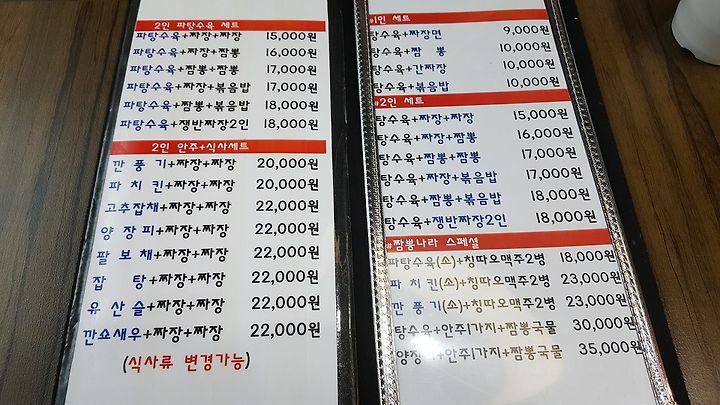 2인 파탕수육 세트
파탕수육+짜장+짜장 15,000원
파탕수육+짜장+짬뽕 16,000원
파탕수육+짬뽕+짬뽕 17,000원
파탕수육+짜장+볶음밥 17,000원
파탕수육+짬뽕+볶음밥 18,000원
파탕수육+쟁반짜장2인 18,000원
2인 안주+식사세트
깐 풍 기+짜장+짜장 20,000원
파 치 킨+짜장+짜장 20,000원
고추잡채+짜장+짜장 22,000원
양 장 피+짜장+짜장 22,000원
팔 보 채+짜장+짜장 22,000원
잡 탕+짜장+짜장 22,000원
유 산 슬+짜장+짜장 22,000원
깐쇼새우+짜장+짜장 22,000원
(식사류 변경가능)
#1인 세트
탕수육+짜장면 9,000원
탕수육+짬 뽕 10,000원
탕수육+간짜장 10,000원
탕수육+볶음밥 10,000원
#2인 세트
탕수육+짜장+짜장 15,000원
탕수육+짜장+짬뽕 16,000원
탕수육+짬뽕+짬뽕 17,000원
탕수육+짜장+볶음밥 17,000원
탕수육+짬뽕+볶음밥 18,000원
탕수육+쟁반짜장2인 18,000원
#짬뽕나라 스페셜
파탕수육(소)+칭따오맥주2병 18,000원
파 치킨(소)+칭따오맥주2병 23,000원
깐 풍 기(소)+칭따오맥주2병 23,000원
탕수육+안주1가지+짬뽕국물 30,000원
양장+안주1가지+짬뽕국물 35,000원